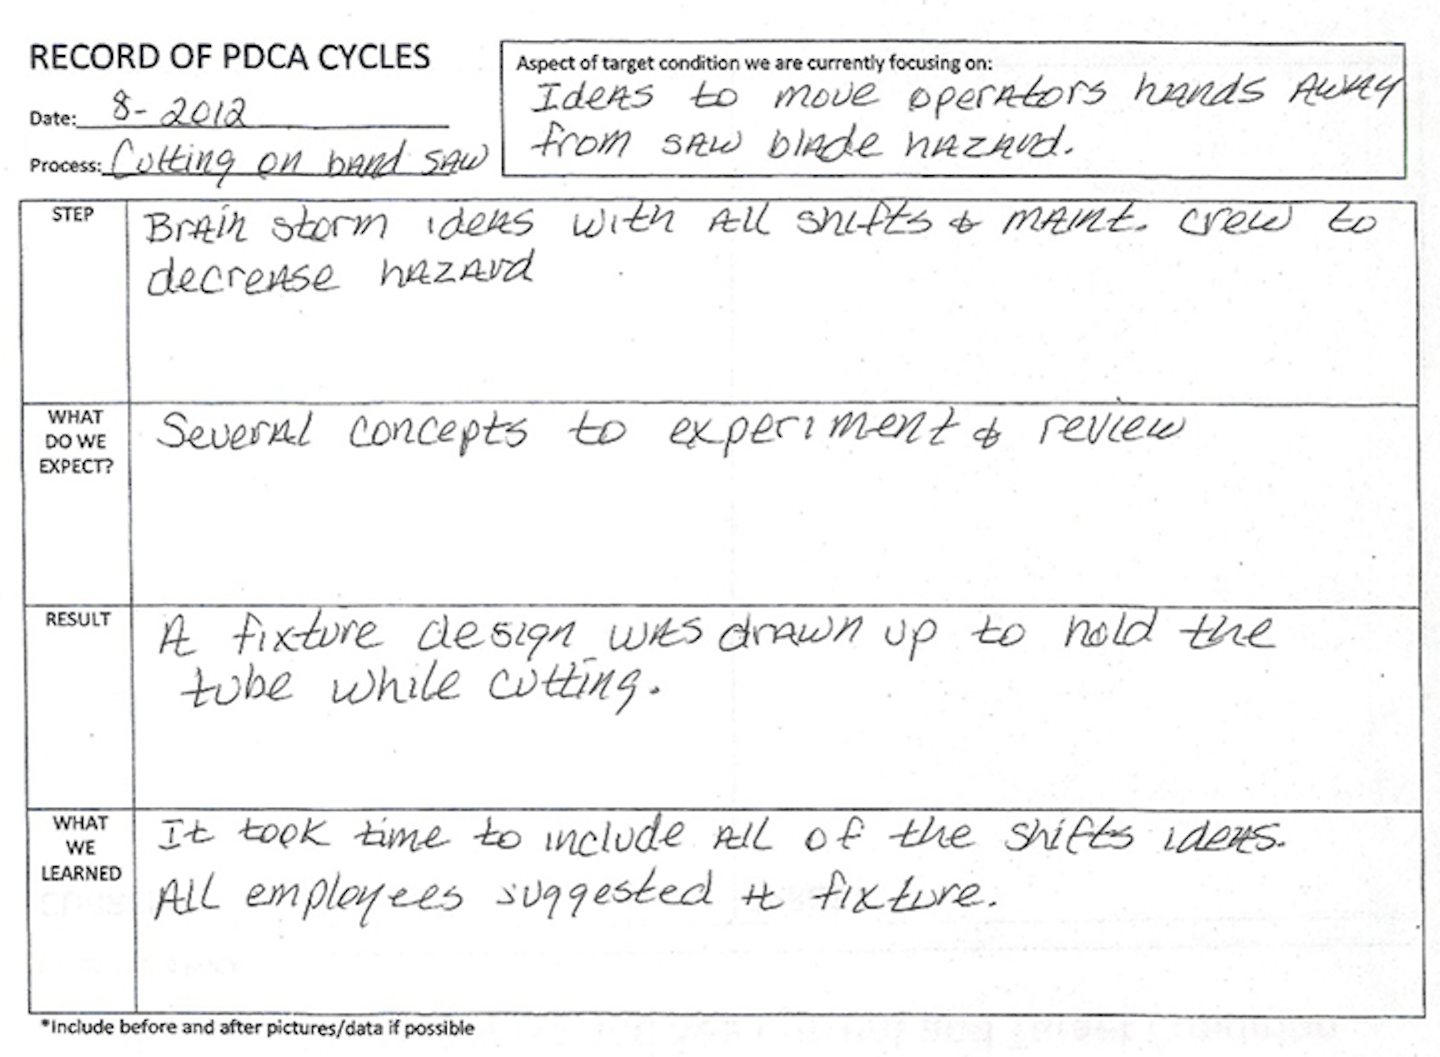 RECORD OF PDCA CYCLES
Date: 8-2012
Process: Cutting on band saw
Aspect of target condition we are currently focusing on:
Ideas to move operators hands away
from saw blade hazard.
STEP
Brain storm ideas with all shifts & maint. crew to
decrease hazard
WHAT
DO WE
EXPECT?
Several concepts to experiment & review
RESULT
A fixture design was drawn up to hold the
tube while cutting.
WHAT
WE
LEARNED
It took time to include all of the shifts ideas.
All employees suggested a fixture.
*Include before and after pictures/data if possible